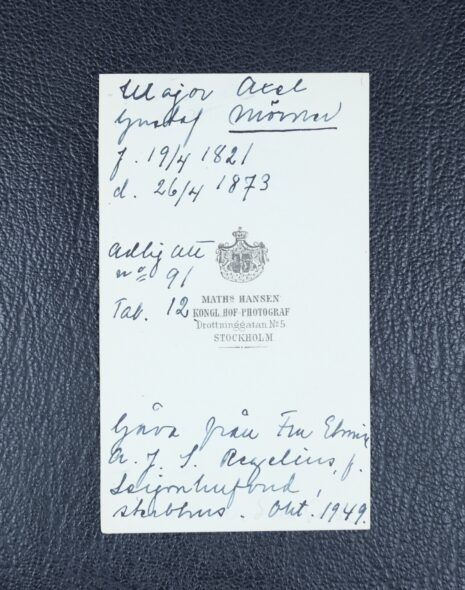 Major Axel
Gustaf Mörner
f. 19/4 1821
d. 26/4 1873
Adlig ätt
no 91
Tab. 12
MATHS HANSEN
KONGL. HOF-PHOTOGRAF
Drottninggatan No 5
STOCKHOLM
Gåva från Fru
A. J. S. f.
Okt. 1949.